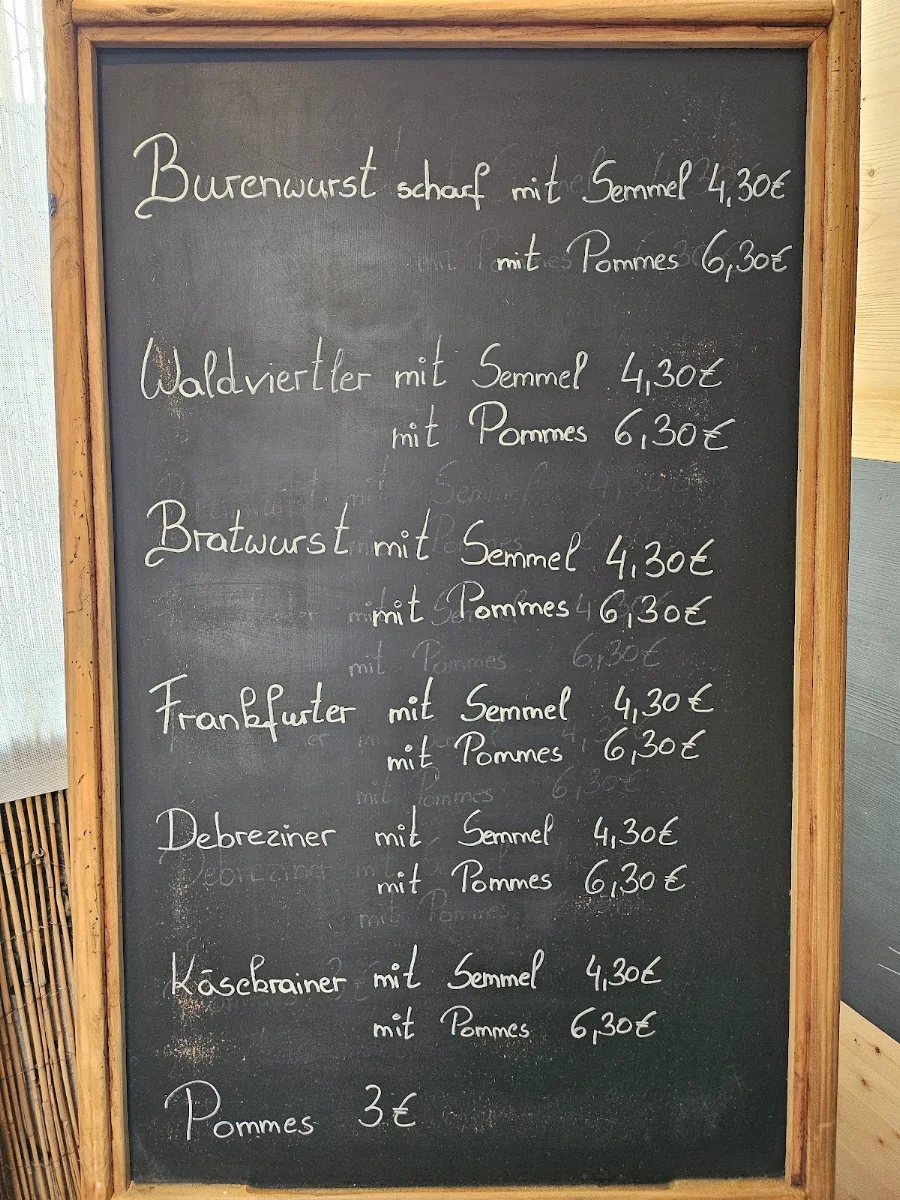 Burenwurst scharf mit Semmel 4,30€
mit Pommes 6,30€
Waldviertler mit Semmel 4,30€
mit Pommes 6,30€
Bratwurst mit Semmel 4,30€
mit Pommes 6,30€
mit Pommes 6,30€
Frankfurter mit Semmel 4,30€
mit Pommes 6,30€
mit Pommes 6,30€
Debreziner mit Semmel 4,30€
mit Pommes 6,30€
Debreziner mit
mit Pommes
Käsekrainer mit Semmel 4,30€
mit Pommes 6,30€
Pommes 3€